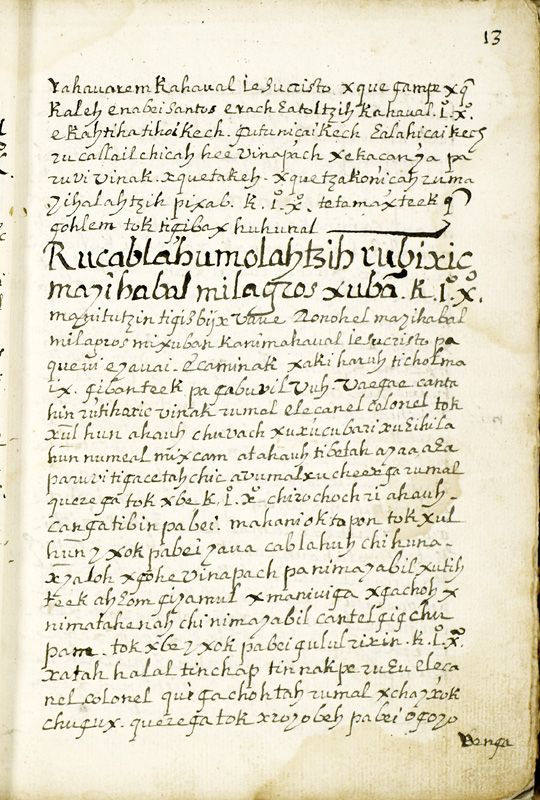 13
rahauarem Kahaual Iesucristo. xquegampe xq̃
Kaleh enabei Santos erach Eatoltzih Kahaual. I. X.
e Kahtihatihoi Kech. Qutunicai Kech Ealahicai Kech
ru callail chicah hee vinapach xekacanya pa
ruvi vinak. xquetakeh. xquetzakonicah ruma
yihalahtzih pixab. K. I. X. tetamaxteek q̃
gohlem tok tigibax huhunal
Rucablahumolahtzih rubixic
mayihabal milagros xubã. K. I. X.
mayitutzin tigisbijx vave Ronohel mayihabal
milagros mixuban Kanimahaual Iesucristo pa
queui eyauai. Ecaminak xaki haruh ticholma
ix. giban teek pa gabuvil vuh. vaegae canta
hin rutiharic vinak rumal elecanel colonel tok
xul hun ahauh chuvach xuxucubari xuEihila
hun numeal mixcam at ahauh tibetah ayaa aEa
paruvi tigacetah chic arumal xucheexga rumal
querega tok xbe K. I. X chirochoch ri ahauh.
canga tibin pabei. mahaniok tapon tok xul
hun yxok pabei yaua cablahuh chi huna.
xyaloh xgohe vinapach pa nimayabil xutih
teek ahEom giyamul xmaniviga xgachoh x
nimatahenah chi nimayabil cantel gig chu
pam. tok xbe yxok pabei qululrixin. K. I. X.
xatah halal tinchap tinnakpe ruEu eleca
nel colonel quigachohtah rumal xchayxok
chugux. querega tok xroyobeh pabei ogoyo
venga